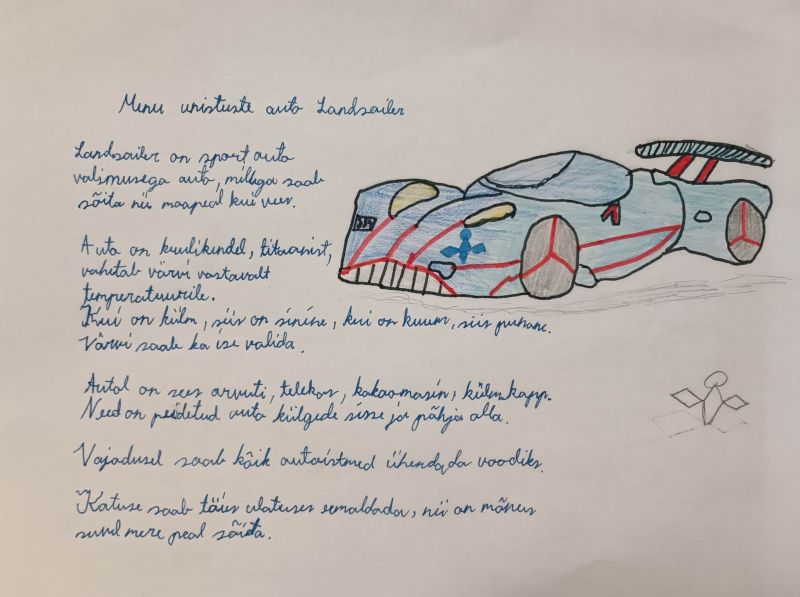 Minu unistuste auto Landsailer
Landsailer on sport auto
välimusega auto, millega saab
sõita nii maapeal kui vees.
Auto on kuulikindel, titaanist,
vahetab värvi vastavalt
temperatuurile.
Kui on külm, siis on sinine, kui on kuum, siis punane.
Värvi saab ka ise valida.
Autol on sees arvuti, telekas, kakaomasin, külmkapp.
Need on peidetud auto külgede sisse ja põhja alla.
Vajadusel saab kõik autoistmed ühendada voodiks.
Katuse saab täies ulatuses eemaldada, nii on mõnus
suvel mere peal sõita.